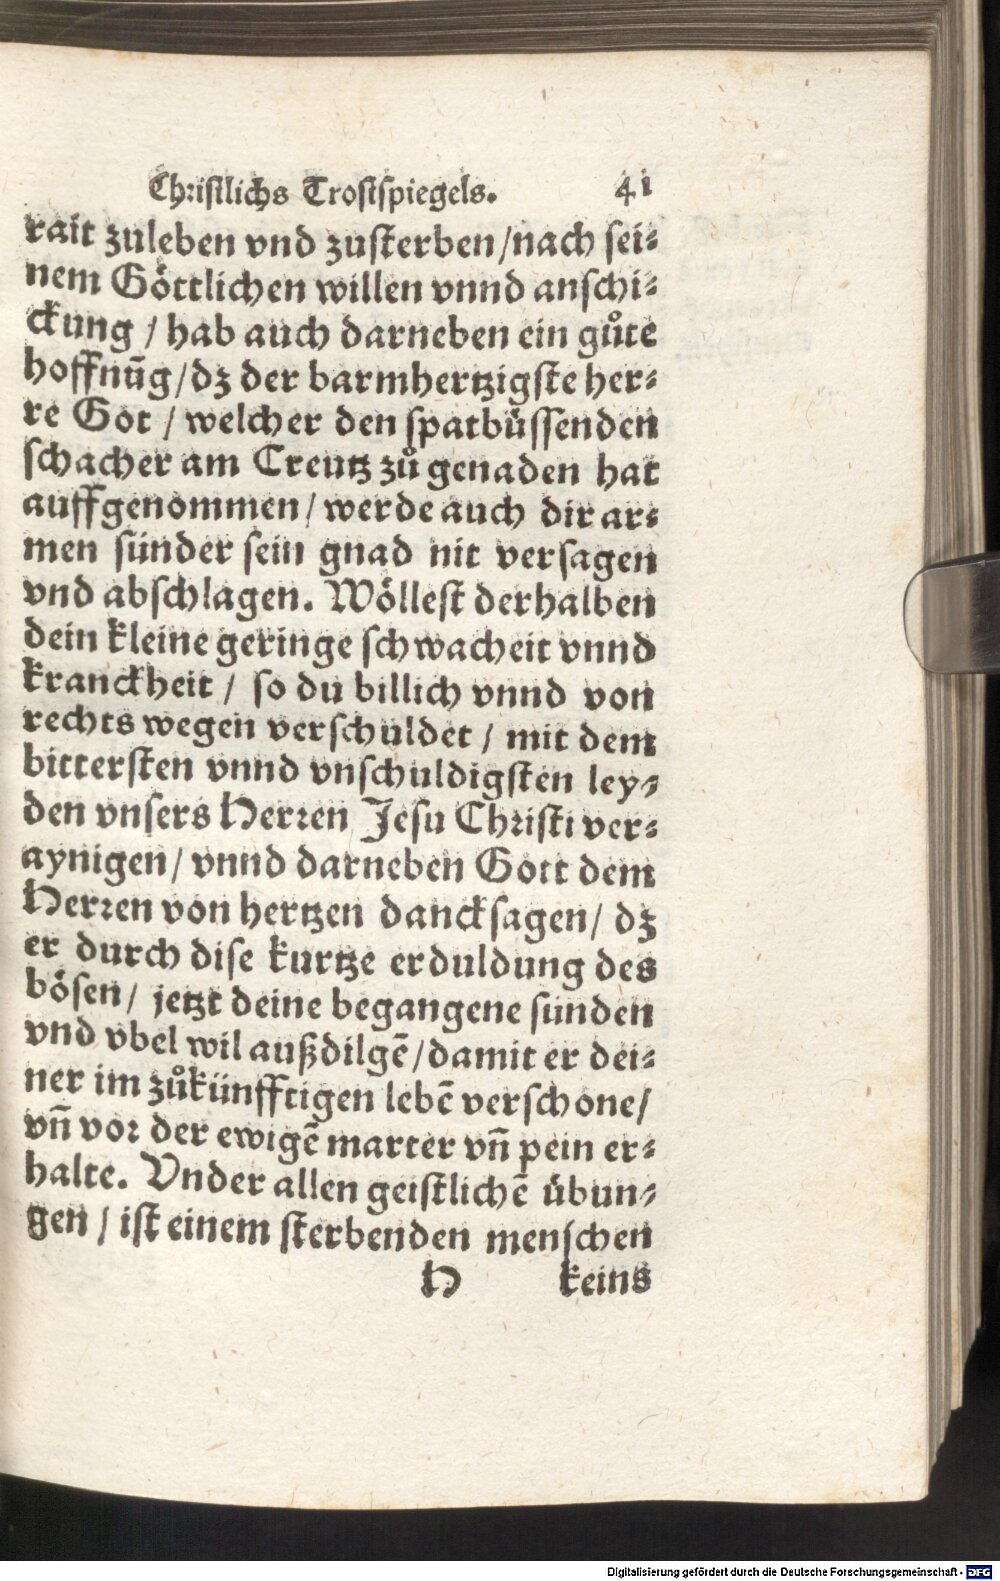 Christlichs Trostspiegels. 41
rait zuleben vnd zusterben/nach sei⸗
nem Göttlichen willen vnnd anschi⸗
ckung / hab auch darneben ein gůte
hoffnũg/dz der barmhertzigste her⸗
re Got / welcher den spatbüssenden
schacher am Creutz zů genaden hat
auffgenommen/ werde auch dir ar⸗
men sünder sein gnad nit versagen
vnd abschlagen. Wöllest derhalben
dein kleine geringe schwacheit vnnd
kranckheit / so du billich vnnd von
rechts wegen verschuldet / mit dem
bittersten vnnd vnschuldigsten ley⸗
den vnsers Herren Jesu Christi ver⸗
aynigen/ vnnd darneben Gott dem
Herren von hertzen dancksagen/ dz
er durch dise kurtze erduldung des
bösen/ jetzt deine begangene sünden
vnd vbel wil außdilgẽ/damit er dei⸗
ner im zůkünfftigen lebẽ verschone/
vñ vor der ewigẽ marter vñ pein er⸗
halte. Vnder allen geistlichẽ übun⸗
gen / ist einem sterbenden menschen
H keins
Digitalisierung gefördert durch die Deutsche Forschungsgemeinschaft - DFG